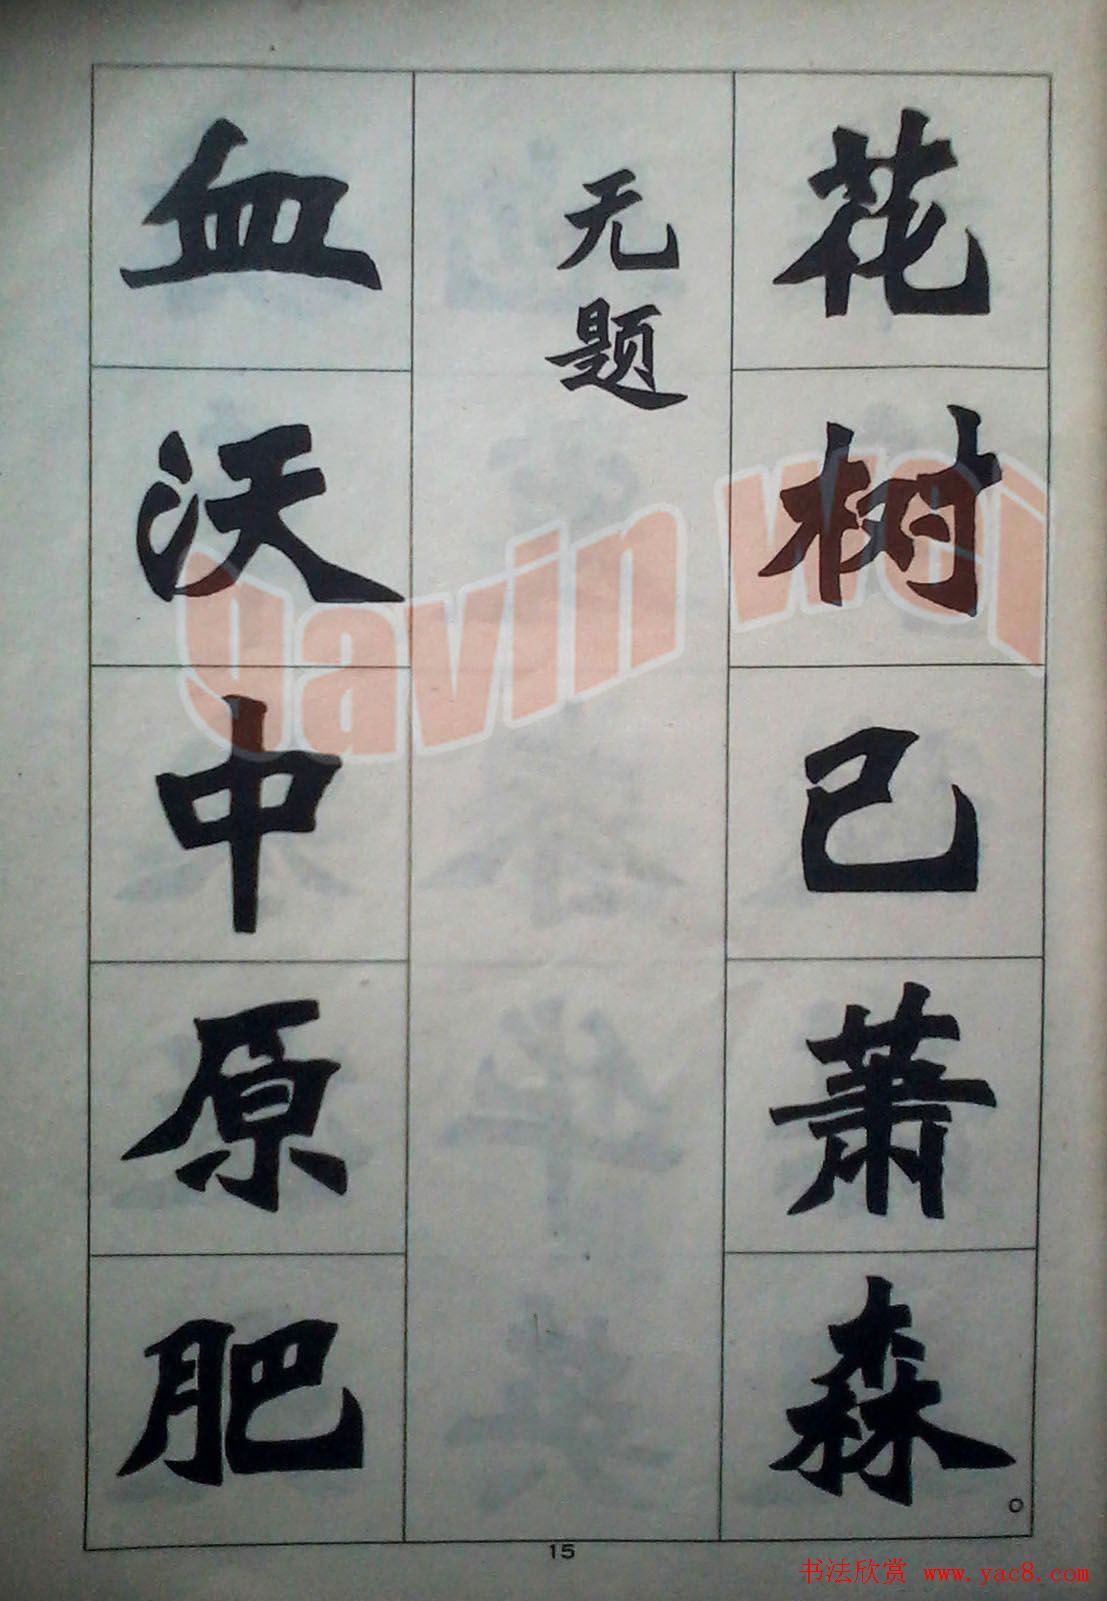 花树已萧森。
无题
血沃中原肥
gavin wei
15
书法欣赏 www.yac8.com